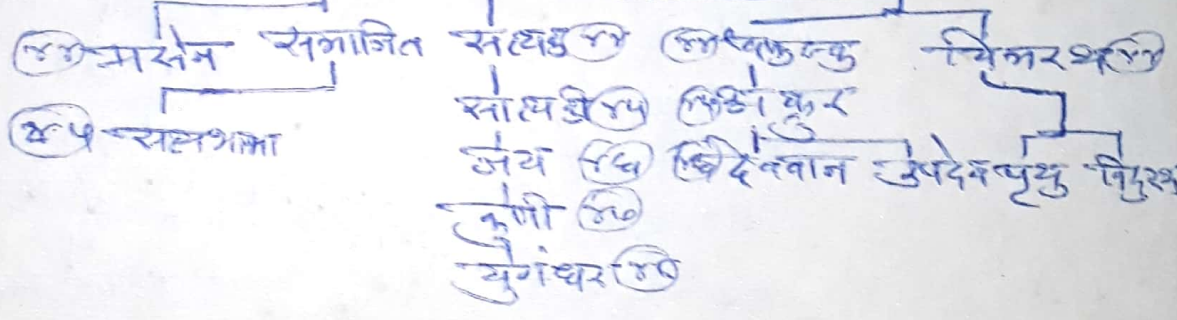 (४४) प्रसेन सत्राजित सत्यक (४४) (४४) श्वफल्क चित्ररथ (४४)
सात्यकी (४५) अक्रूर
(४५) सत्यभामा
जय (४६) (४६) देववान उपदेव पृथु विदुरथ
कुणी (४७)
युगंधर (४८)